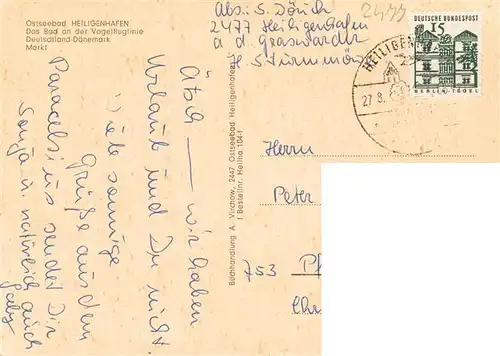 Ostseebad HEILIGENHAFEN
Das Bad an der Vogelfluglinie
Deutschland-Dänemark
Markt
Abs.: S. Dörich
2477 Heiligenhafen
a. d. Graswarder
H. Sturmmöwe
2477
DEUTSCHE BUNDESPOST
15
BERLIN-TEGEL
HEILIGEN
27.8.
Ätsch — wir haben
Urlaub und Du nicht
Viele sonnige
Grüße aus dem
Paracelsius sendet Dir
Sonja u. natürlich auch
Gaby
Buchhandlung A. Virchow, 2447 Ostseebad Heiligenhafen
1 Bestellnr. Heilha 104-1
Herrn
Peter
753 Pf
Chr